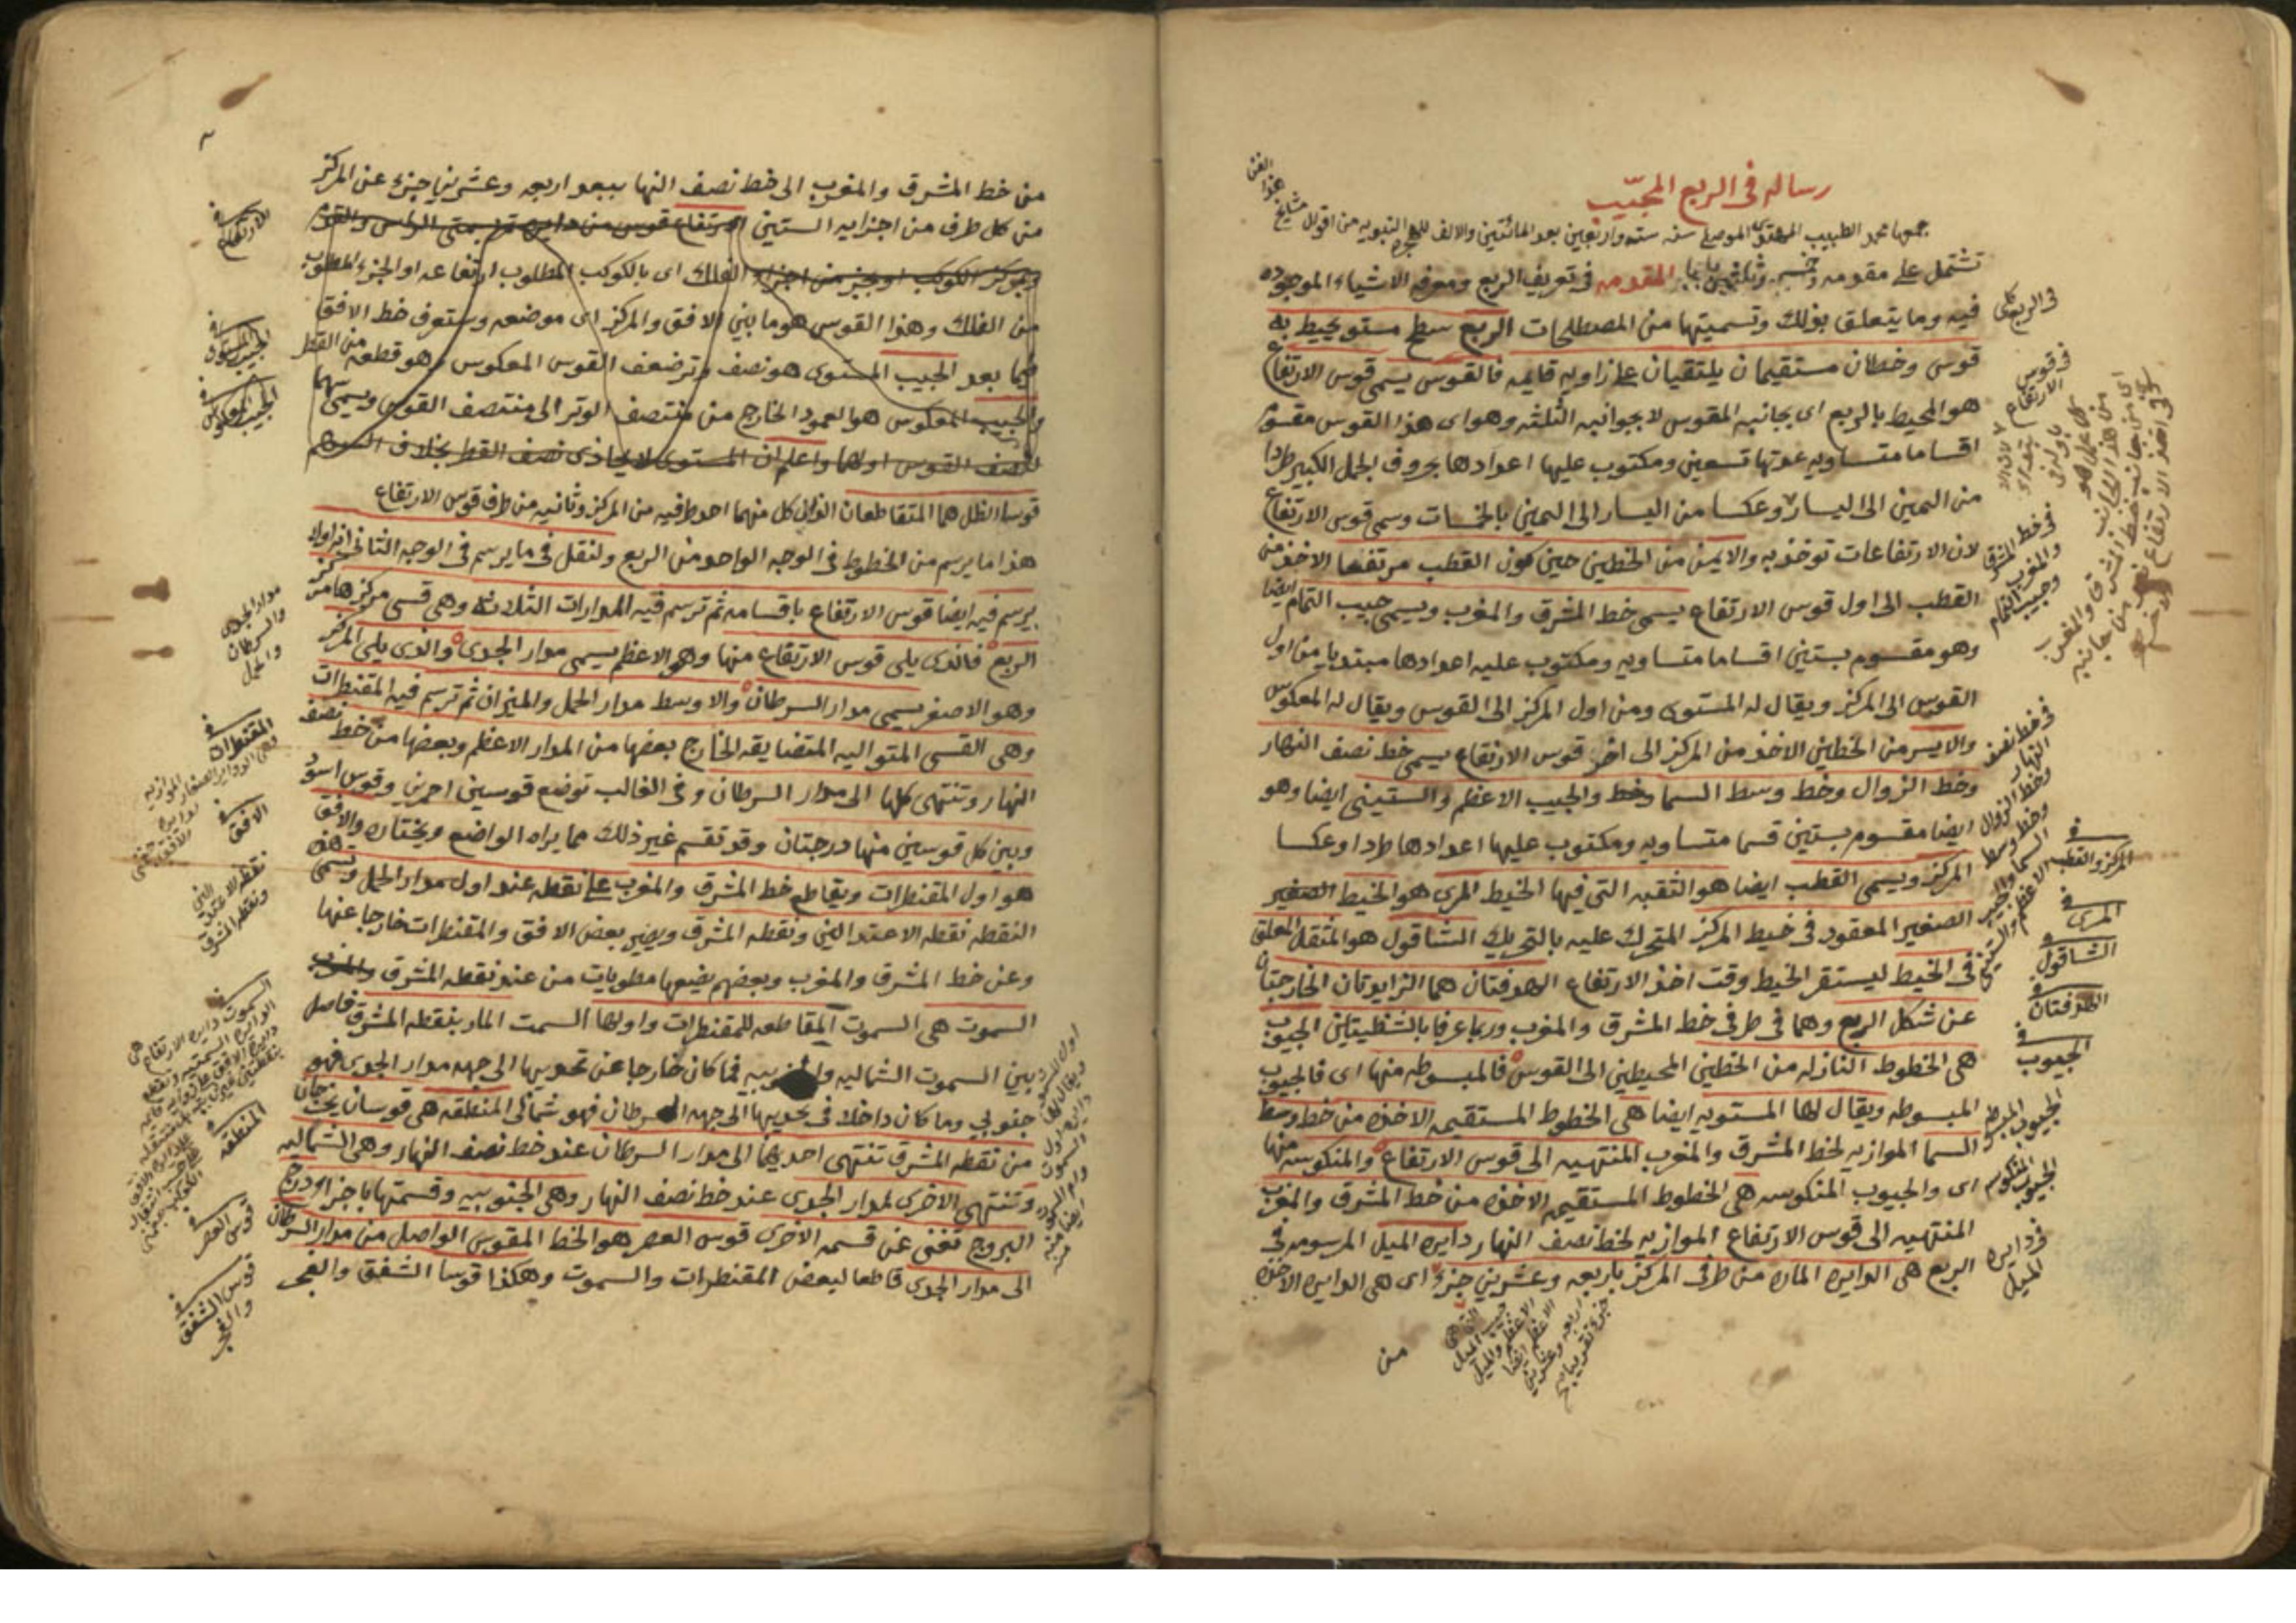 رساله فى الربع المجيّب
جمعها محمد الطبيب الموصلي سنه سته واربعين بعد المائتين والالف للهجره النبويه من اقوال مشايخ هذا الفن
تشتمل على مقدمه وخمسه وثلثين بابا المقدمه فى تعريف الربع ومعرفه الاشياء الموجوده
فيه وما يتعلق بذلك وتسميتها من المصطلحات الربع سطح مستو يحيط به
قوس وخطان مستقيمان يلتقيان على زاويه قايمه فالقوس يسمى قوس الارتفاع
هو المحيط بالربع اى بجانبه المقوس لا بجوانبه الثلثه وهو اى هذا القوس مقسوم
اقساما متساويه عدتها تسعين ومكتوب عليها اعدادها بحروف الجمل الكبير طردا
من اليمين الى اليسار وعكسا من اليسار الى اليمين بالخمسات وسمى قوس الارتفاع
لان الارتفاعات توخذ به والايمن من الخطين حين كون القطب مرتفعا الاخذ من
القطب الى اول قوس الارتفاع يسمى خط المشرق والمغرب ويسمى جيب التمام ايضا
وهو مقسوم بستين اقساما متساويه ومكتوب عليه اعدادها مبتديا من اول
القوس الى المركز ويقال له المستوى ومن اول المركز الى القوس ويقال له المعكوس
والايسر من الخطين الاخذ من المركز الى اخر قوس الارتفاع يسمى خط نصف النهار
وخط الزوال وخط وسط السما وخط والجيب الاعظم والستينى ايضا وهو
ايضا مقسوم بستين قسما متساويه ومكتوب عليها اعدادها طردا وعكسا
المركز ويسمى القطب ايضا هو الثقبه التى فيها الخيط المرى هو الخيط الصغير
الصغير المعقود فى خيط المركز المتحرك عليه بالتحريك الشاقول هو المثقل المعلق
فى الخيط ليستقر الخيط وقت اخذ الارتفاع الهدفتان هما الزايدتان الخارجتان
عن شكل الربع وهما فى طرفى خط المشرق والمغرب وربما عرفا بالشظيتين الجيوب
هى الخطوط النازله من الخطين المحيطين الى القوس فالمبسوطه منها اى فالجيوب
المبسوطه ويقال لها المستويه ايضا هى الخطوط المستقيمه الاخذه من خط وسط
السما الموازيه لخط المشرق والمغرب المنتهيه الى قوس الارتفاع والمنكوسه منها
اى والجيوب المنكوسه هى الخطوط المستقيمه الاخذه من خط المشرق والمغرب
المنتهيه الى قوس الارتفاع الموازيه لخط نصف النهار دايره الميل المرسومه فى
الربع هى الدايره الماره من طرفى المركز باربعه وعشرين جزءً اى هى الدايره الاخذه
من
فى الربع
فى قوس الارتفاع
فى خط المشرق والمغرب وجيب التمام
فى خط نصف النهار
وخط الزوال
وخط وسط السما والجيب الاعظم والستينى
فى المركز والقطب
فى المرى
فى الشاقول
فى الهدفتان
فى الجيوب
الجيوب المبسوطه
الجيوب المنكوسه
فى دايره الميل
من خط المشرق والمغرب الى خط نصف النها ببعد اربعه وعشرين جزء عن المركز
من كل طرف من اجزايه الستين الارتفاع قوس من دايره تمر بسمتى الراس والقدم
وبمركز الكوكب او بجزء من اجزاء الفلك اى بالكوكب المطلوب ارتفاعه او الجزء المطلوب
من الفلك وهذا القوس هو ما بين الافق والمركز اى موضعه وستعرف خط الافق
فيما بعد الجيب المستوى هو نصف وتر ضعف القوس المعكوس وهو قطعه من القطر
والجيب المعكوس هو العمود الخارج من منتصف الوتر الى منتصف القوس ويسمى سهما
لنصف القوس اولها واعلم ان المستوى لا يحاذى نصف القطر بخلاف السهم
قوسا الظل هما المتقاطعان الذان كل منهما احد طرفيه من المركز وثانيه من طرف قوس الارتفاع
هذا ما يرسم من الخطوط فى الوجه الواحد من الربع ولنقل فى ما يرسم فى الوجه الثانى انه اولا
يرسم فيه ايضا قوس الارتفاع باقسامه ثم ترسم فيه المدارات الثلاثه وهى قسى مركزها مركز
الربع فالذى يلى قوس الارتفاع منها وهو الاعظم يسمى مدار الجدى والذى يلى المركز
وهو الاصغر يسمى مدار السرطان والاوسط مدار الحمل والميزان ثم ترسم فيه المقنطرات
وهى القسى المتواليه المتضايقه الخارج بعضها من المدار الاعظم وبعضها من خط نصف
النهار وتنتهى كلها الى مدار السرطان وفى الغالب توضع قوسين احمرين وقوس اسود
وبين كل قوسين منها درجتان وقد تقسم غير ذلك مما يراه الواضع ويختاره والافق
هو اول المقنطرات ويقاطع خط المشرق والمغرب على نقطه عند اول مدار الحمل وتسمى هذه
النقطه نقطه الاعتدالين ونقطه المشرق ويصير بعض الافق والمقنطرات خارجا عنها
وعن خط المشرق والمغرب وبعضهم يضعها مطويات من عند نقطه المشرق والمغرب
السموت هى السموت المقاطعه للمقنطرات واولها السمت المار بنقطه المشرق فاصل
بين السموت الشماليه والجنوبيه فما كان خارجا عن تحديبها الى جهه مدار الجدى فهو
جنوبي وما كان داخلا فى تحديبها الى جهه السرطان فهو شمالى المنطقه هى قوسان يخرجان
من نقطه المشرق تنتهى احديهما الى مدار السرطان عند خط نصف النهار وهى الشماليه
وتنتهى الاخرى لمدار الجدى عند خط نصف النهار وهى الجنوبيه وقسمتها باجزاء درج
البروج تغنى عن قسمه الاخرى قوس العصر هو الخط المقوس الواصل من مدار السرطان
الى مدار الجدى قاطعا لبعض المقنطرات والسموت وهكذا قوسا الشفق والفجر
فى الارتفاع
فى الجيب المستوى
فى الجيب المعكوس
مدار الجدى
والسرطان
والحمل
فى المقنطرات
فى الافق
نقطه الاعتدالين
ونقطه المشرق
فى المنطقه
فى قوس العصر
فى قوس الشفق
والفجر